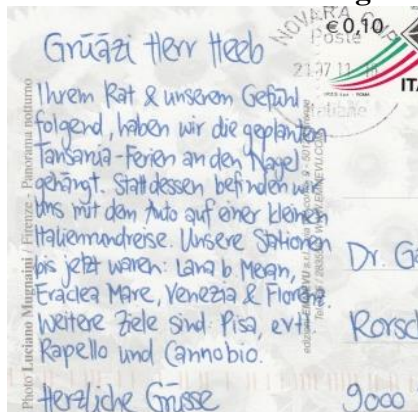 Grüäzi Herr Heeb
Ihrem Rat & unserem Gefühl
folgend, haben wir die geplanten
Tansania-Ferien an den Nagel
gehängt. Stattdessen befinden wir
uns mit dem Auto auf einer kleinen
Italienrundreise. Unsere Stationen
bis jetzt waren: Lana b. Meran,
Eraclea Mare, Venezia & Florenz.
Weitere Ziele sind: Pisa, evtl.
Rapello und Cannobio.
Herzliche Grüsse
Dr. Ge
Rorsch
9000
NOVARA
Poste
Italiane
€ 0,10
ITA
Photo Luciano Mugnaini / Firenze - Panorama notturno